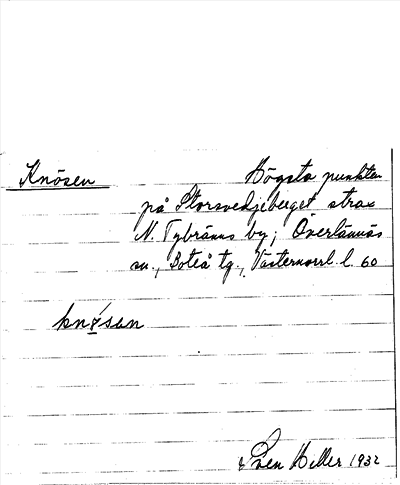 Knösen Högsta punkten
på Storsvedjeberget strax
N. Tybränns by; Överlännäs
sn., Boteå tg., Västernorrl. l. 60
knøsen
Sven Hiller 1932